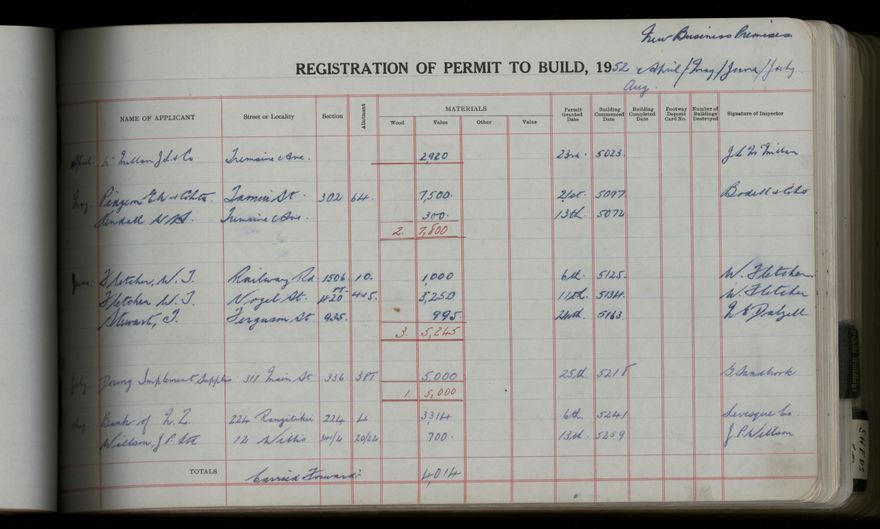 New Business Premises
REGISTRATION OF PERMIT TO BUILD, 1952 April/May/June/July
Aug.
NAME OF APPLICANT Street or Locality Section Allotment MATERIALS Permit Granted Date Building Commenced Date Building Completed Date Footway Deposit Card No. Number of Buildings Destroyed Signature of Inspector
Wood Value Other Value
April. Millan J L & Co. Tremaine Ave. 2,920 23rd. 5023. J L Mc Millan
May. Pidgeon & Cohts Tamin St. 302 64. 7,500. 21st. 5097.
Kendall Tremaine Ave. 300. 13th. 5072
2. 7,800
June. Fletcher, W. J. Railway Rd. 1506. 10. 1,000 6th. 5125. W. Fletcher
Fletcher W. J. Vogel St. 420 445. 3,250 11th. 5134. W. Fletcher
Stewart, J. Ferguson St 935. 995. 24th. 5163 Dalzell
3. 5,245
July. Implement Supplies 311 Main St 336 5,000 25th 5218 G Sandbrook
1. 5,000
Aug. Bank of N.Z. 224 Rangitikei 224 4 3314 6th. 5241 Levesque Co.
Willson J P 12 Willis 20/22 700. 13th. 5259 J. P. Willson
TOTALS Carried Forward: 4,014
SHEDS